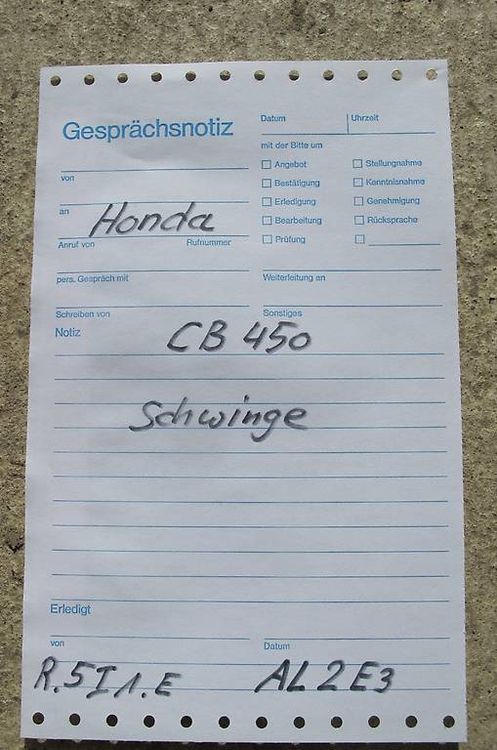 Gesprächsnotiz
Datum Uhrzeit
mit der Bitte um
Angebot Stellungnahme
von
Bestätigung Kenntnisnahme
Erledigung Genehmigung
an Honda
Bearbeitung Rücksprache
Anruf von Rufnummer
Prüfung
pers. Gespräch mit Weiterleitung an
Schreiben von Sonstiges
Notiz CB 450
Schwinge
Erledigt
von Datum
R.5I1.E AL2E3